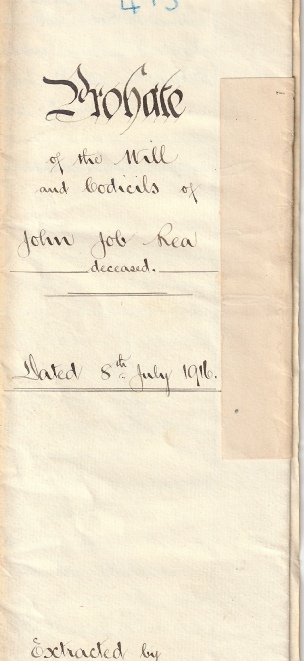 Probate
of the Will
and Codicils of
John Job Rea
deceased.
Dated 8th July 1916.
Extracted by